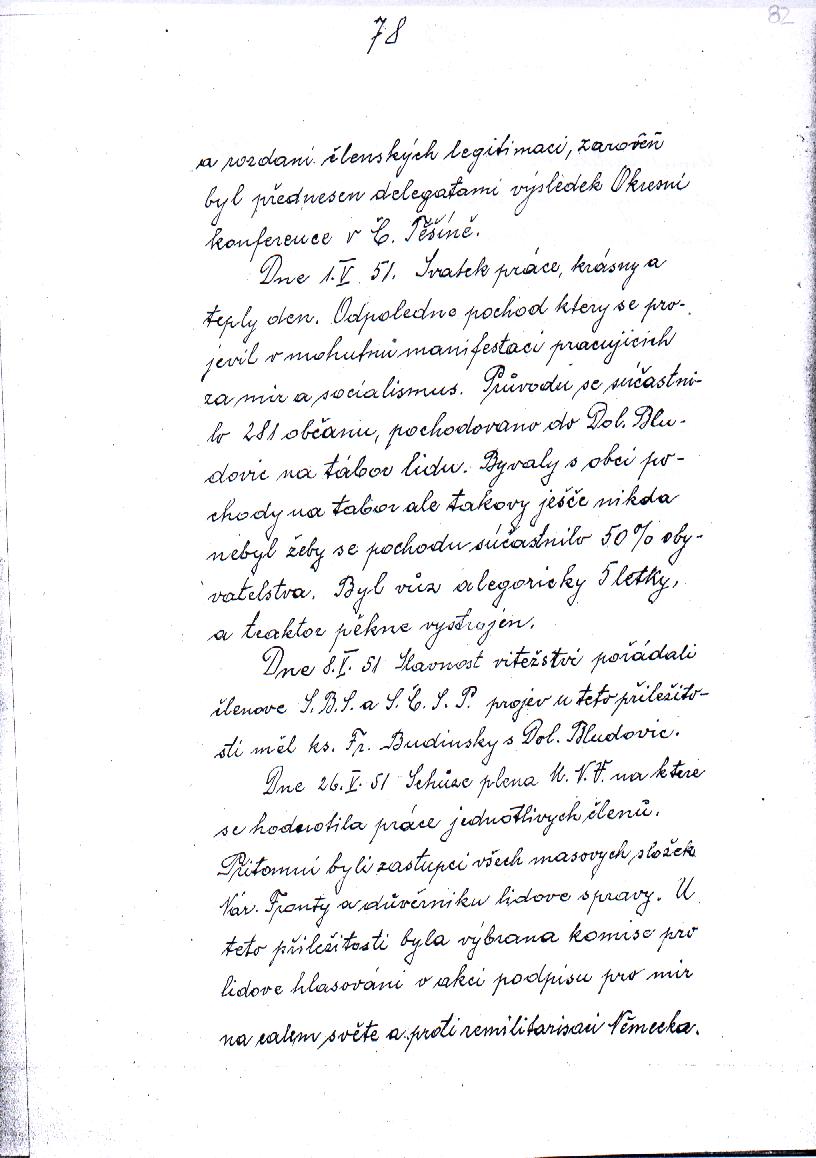 82
78
a rozdani členských legitimaci, zaroveň
byl přednesen delegatami výsledek Okresni
konference v Č. Těšíně.
Dne 1.V 51. Svatek práce, krásny a
teply den. Odpoledne pochod ktery se pro-
jevil v mohutnů manifestaci pracujicich
za mir a socialismus. Průvodu se súčastni-
lo 281 občanu, pochodovano do Dol. Blu-
dovic na tábor lidu. Byvaly s obci po-
chody na tabor ale takovy ješče nikda
nebyl žeby se pochodu súčastnilo 50% oby-
vatelstva. Byl vůz alegoricky 5 letky,
a traktor pěkne vystrojen.
Dne 8.V. 51 Slavnost vitežství pořádali
členove S.B.S. a S.Č.S.P. projev u teto přiležito-
sti měl ks. Fr. Budinsky s Dol. Bludovic.
Dne 26.V. 51 Schůze plena M.N.V. na ktere
se hodnotila práce jednotlivych členů.
Přitomni byli zastupci všech masovych složek
Nár. Fronty a důvěrniku lidove spravy. U
teto přiležitosti byla výbrana komise pro
lidove hlasováni v akci podpisu pro mir
na calem světe a proti remilitarisaci Německa.